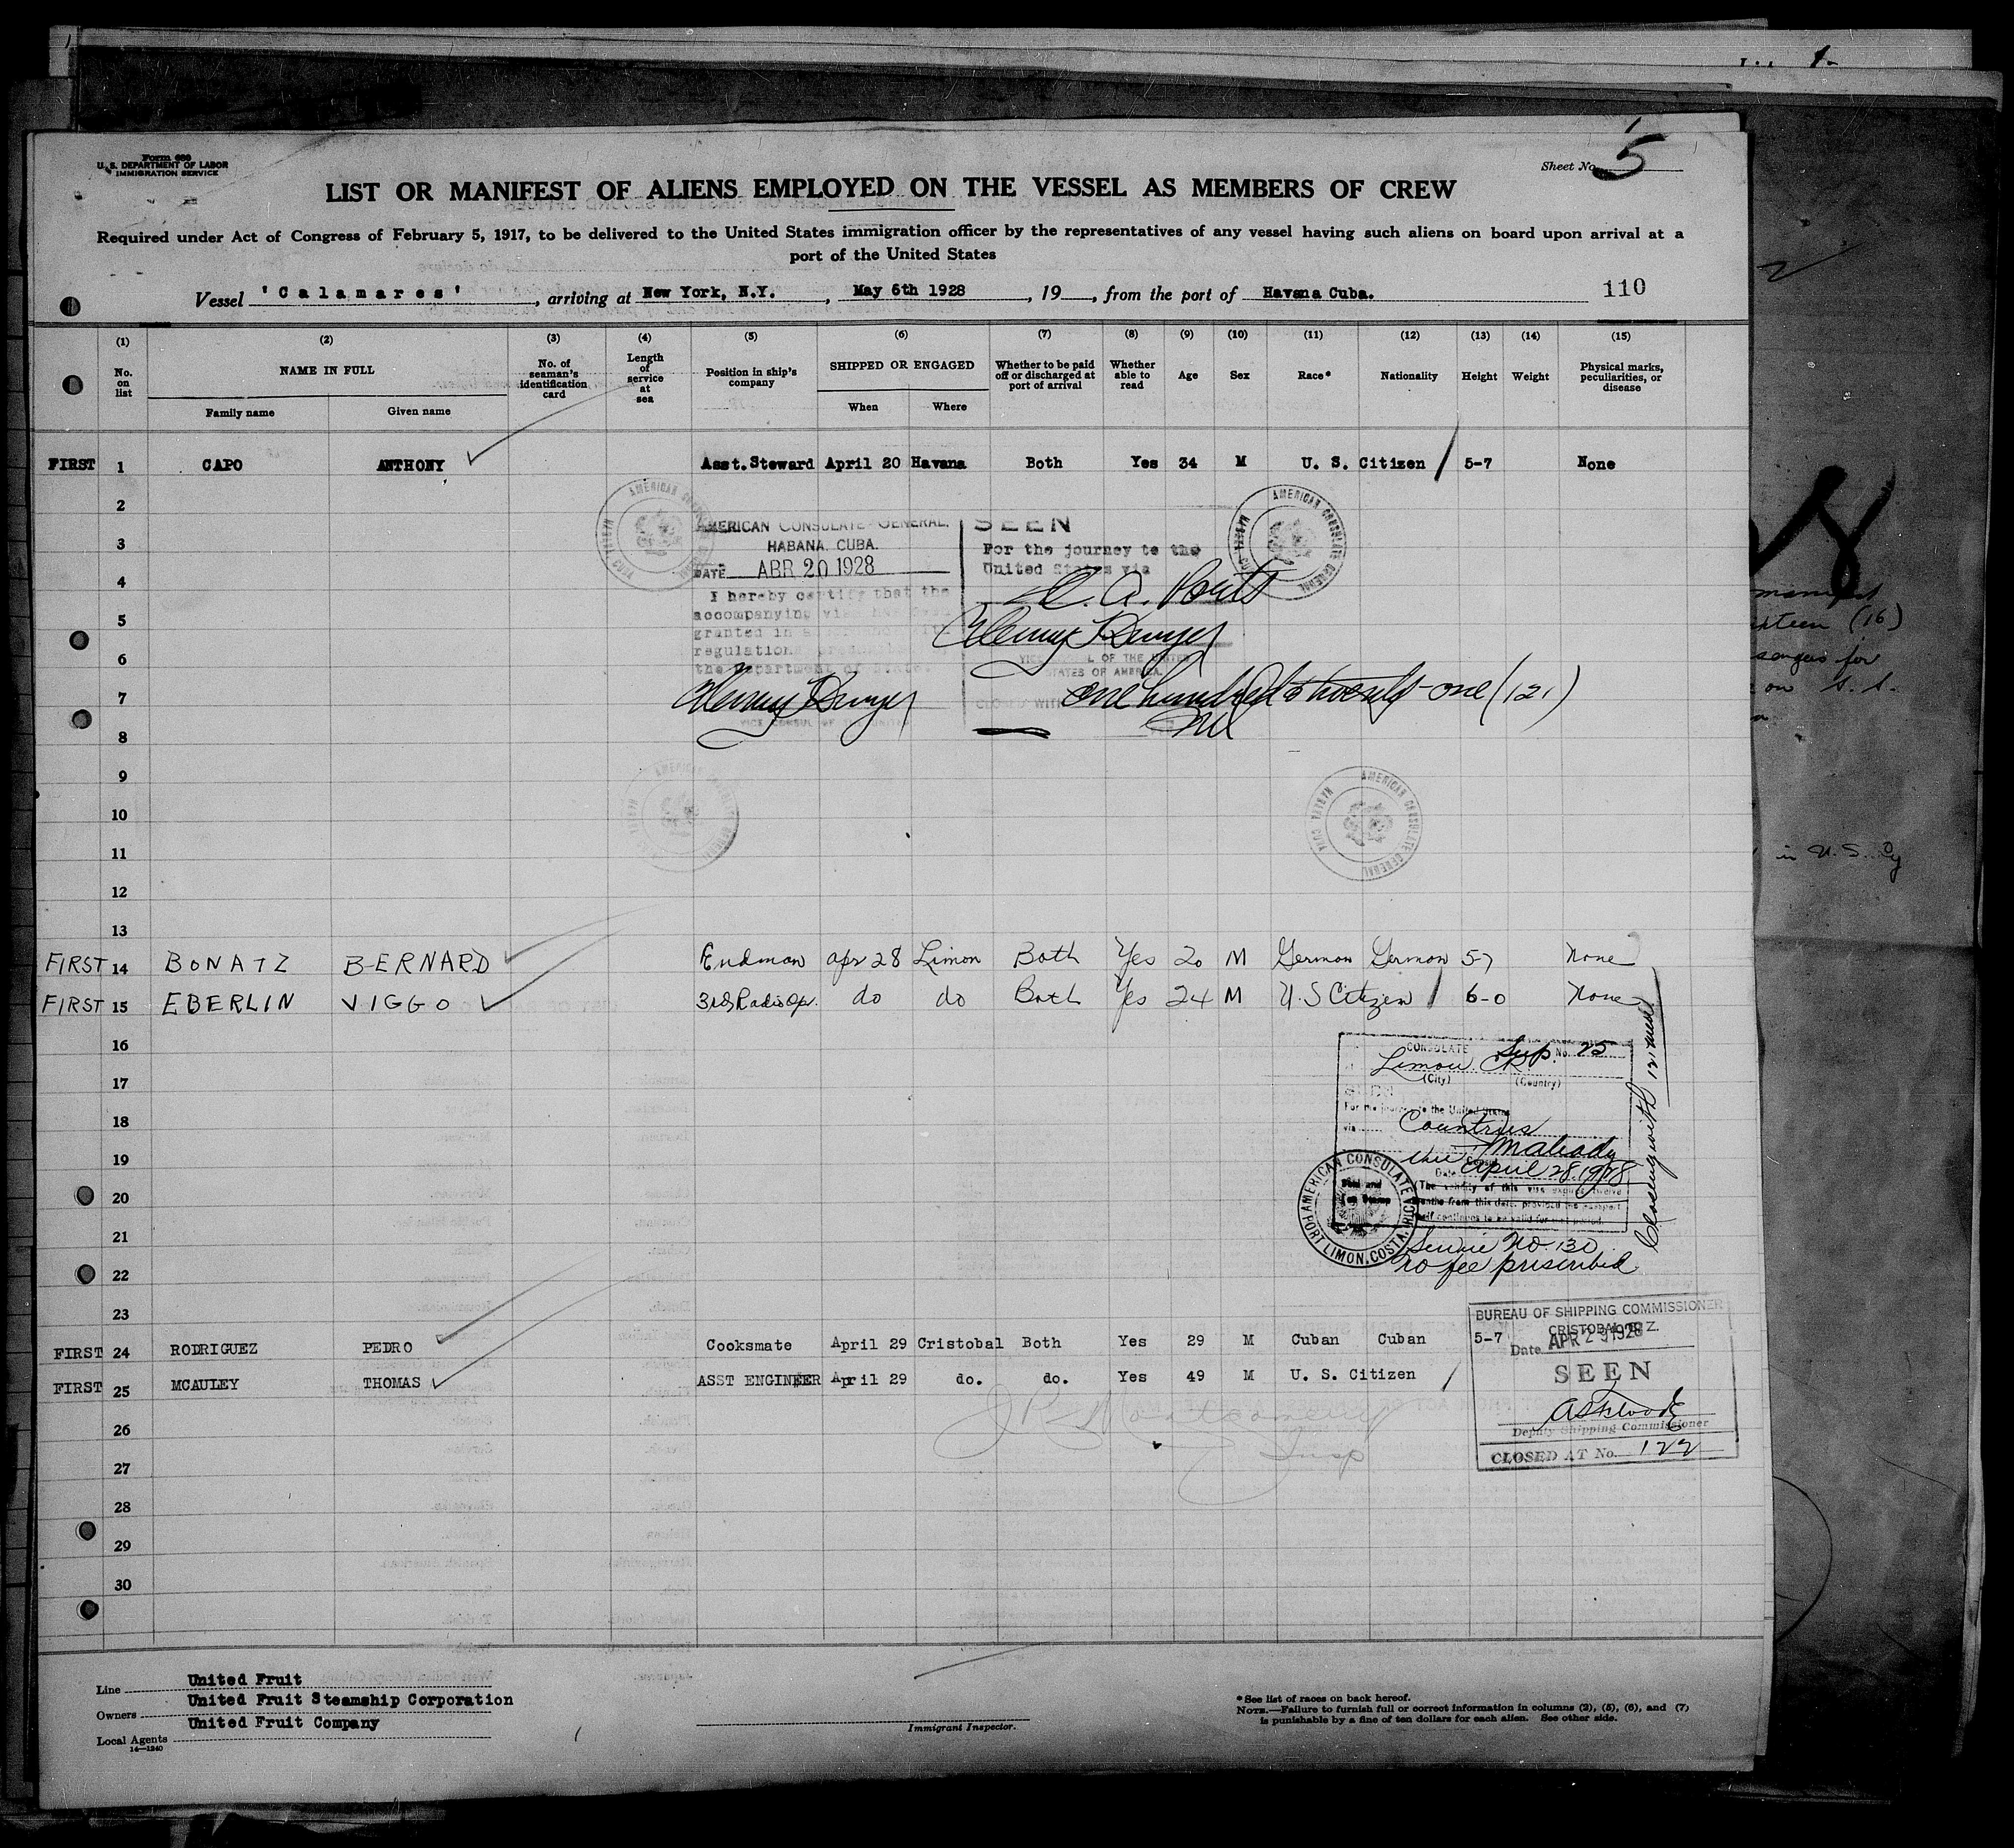 Form 680
U. S. DEPARTMENT OF LABOR
IMMIGRATION SERVICE
Sheet No. 5
LIST OR MANIFEST OF ALIENS EMPLOYED ON THE VESSEL AS MEMBERS OF CREW
Required under Act of Congress of February 5, 1917, to be delivered to the United States immigration officer by the representatives of any vessel having such aliens on board upon arrival at a
port of the United States
Vessel 'Calamares', arriving at New York, N.Y., May 6th 1928, 19, from the port of Havana Cuba. 110
(1) (2) (3) (4) (5) (6) (7) (8) (9) (10) (11) (12) (13) (14) (15)
No. on list
NAME IN FULL
Family name
Given name
No. of seaman's identification card
Length of service at sea
Position in ship's company
SHIPPED OR ENGAGED
When
Where
Whether to be paid off or discharged at port of arrival
Whether able to read
Age
Sex
Race*
Nationality
Height
Weight
Physical marks, peculiarities, or disease
FIRST 1 CAPO ANTHONY Asst. Steward April 20 Havana Both Yes 34 M U. S. Citizen 5-7 None
2
3
4
5
6
7
8
9
10
11
12
13
AMERICAN CONSULATE GENERAL.
HABANA. CUBA.
DATE ABR 20 1928
I hereby certify that the
accompanying
granted in
regulations
the Department of State.
SEEN
For the journey to the
United States via
VICE CONSUL OF THE UNITED
STATES OF AMERICA.
CLOSED WITH one hundred & twenty-one (121)
AMERICAN CONSULATE GENERAL
HABANA CUBA
FIRST 14 BONATZ BERNARD Endman Apr 28 Limon Both Yes 20 M German German 5-7 None
FIRST 15 EBERLIN VIGGO 3rd Radio Op. do do Both Yes 24 M U. S Citizen 6-0 None
16
17
18
19
20
21
22
23
CONSULATE Sup No. 25
Limon CR
(City) (Country)
For the journey to the United States
via Countries
Consul
Date April 28, 1928
(The validity of this visa expires twelve
months from this date, provided the passport
itself continues to be valid for that period.
AMERICAN CONSULATE
PORT LIMON, COSTA RICA
Service No. 130
No fee prescribed
Closing with 121 names
FIRST 24 RODRIGUEZ PEDRO Cooksmate April 29 Cristobal Both Yes 29 M Cuban Cuban 5-7
FIRST 25 MCAULEY THOMAS ASST ENGINEER April 29 do. do. Yes 49 M U. S. Citizen
26
27
28
29
30
BUREAU OF SHIPPING COMMISSIONER
CRISTOBAL, C. Z.
Date APR 29 1928
SEEN
Deputy Shipping Commissioner
CLOSED AT No. 122
J R Montgomery
Insp
Line United Fruit
Owners United Fruit Steamship Corporation
Local Agents United Fruit Company
14—1240
Immigrant Inspector.
* See list of races on back hereof.
NOTE.—Failure to furnish full or correct information in columns (2), (5), (6), and (7)
is punishable by a fine of ten dollars for each alien. See other side.
(16)
in U. S.